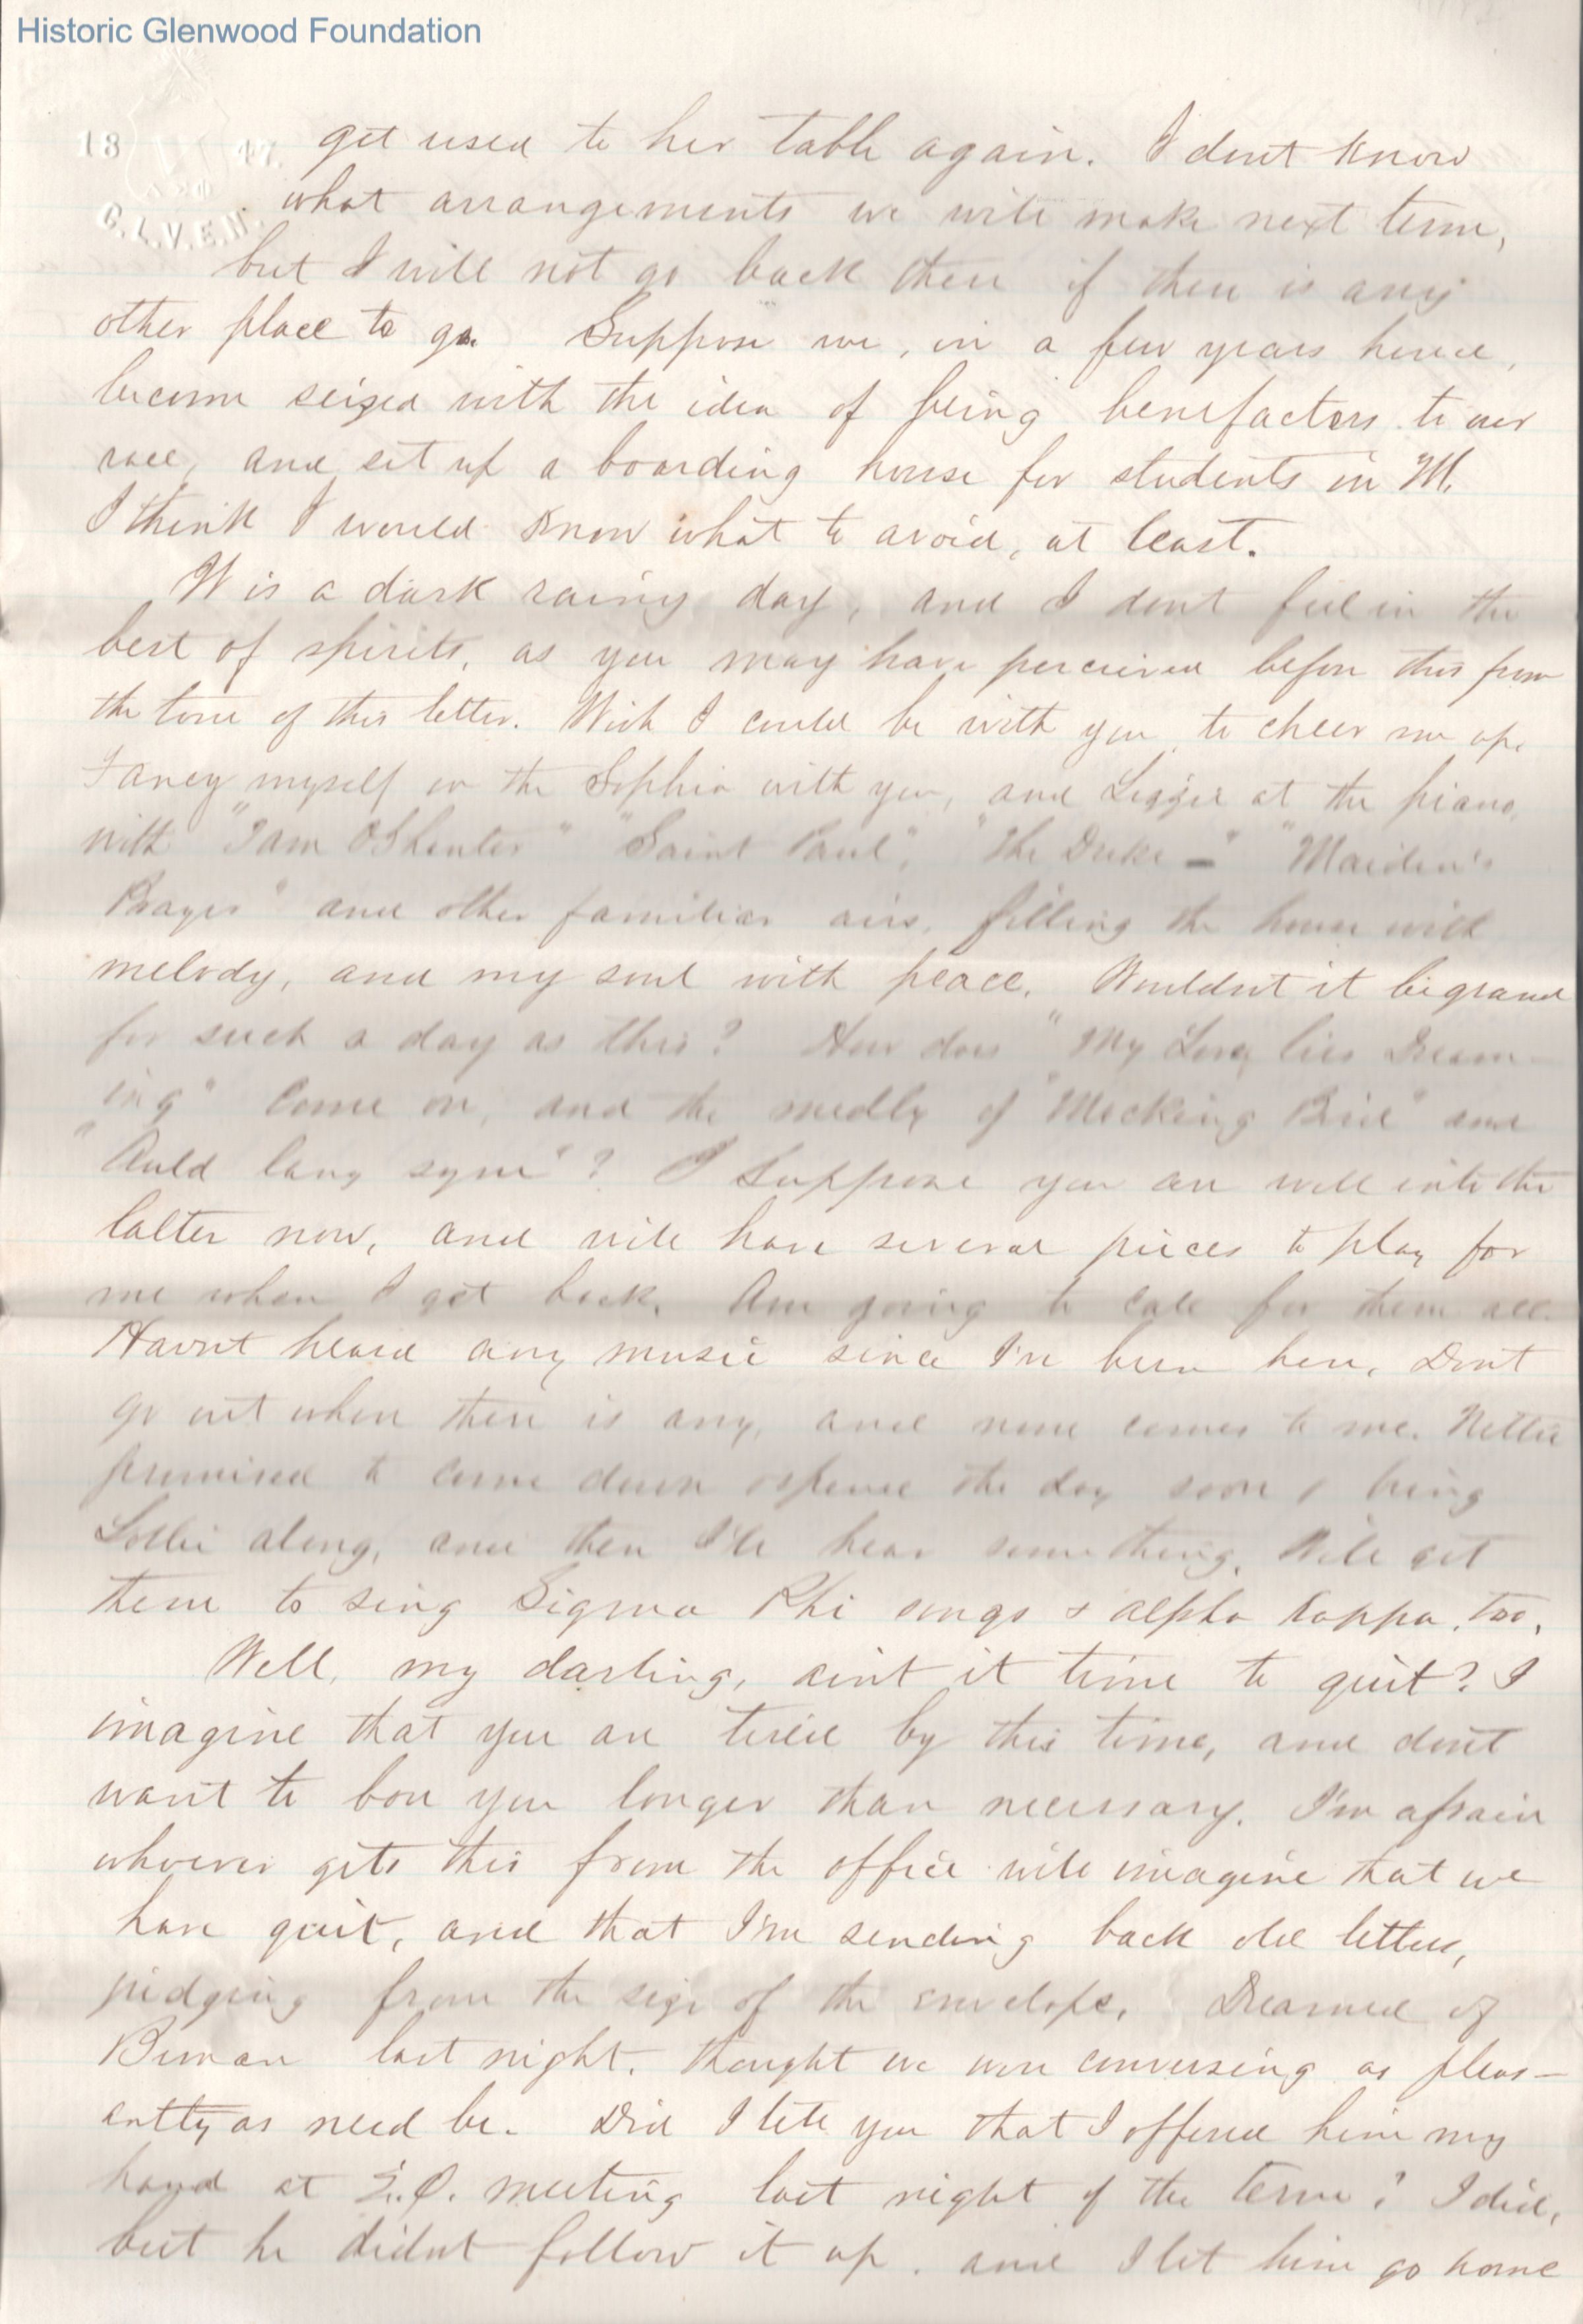 Historic Glenwood Foundation
18 47.
G.L.V.E.N.
get used to her table again. I dont know
what arrangements we will make next term,
but I will not go back there if there is any
other place to go. Suppose we, in a few years hence,
become seized with the idea of being benefactors to our
race, and set up a boarding house for students in M.
I think I would know what to avoid, at least.
It is a dark rainy day, and I dont feel in the
best of spirits, as you may have perceived before this from
the tone of this letter. Wish I could be with you to cheer me up.
Fancy myself on the Sophia with you, and Lizzie at the piano,
with "Tam O'Shanter" "Saint Paul", "The Duke –" "Maiden's
Prayer" and other familiar airs, filling the house with
melody, and my soul with peace. Wouldnt it be grand
for such a day as this? How does "My Love lies Dream-
ing" come on, and the medly of "Mocking Bird" and
"Auld lang syne"? I suppose you are well into the
latter now, and will have several pieces to play for
me when I get back. Am going to call for them all.
Havnt heard any music since I've been here, Dont
go out when there is any, and none comes to me. Nettie
promised to come down & spend the day soon & bring
Lollie along, and then I'll hear something. Will get
them to sing Sigma Phi songs & Alpha Kappa, too.
Well, my darling, aint it time to quit? I
imagine that you are tired by this time, and dont
want to bore you longer than necessary. I'm afraid
whoever gets this from the office will imagine that we
have quit, and that I'm sending back old letters,
judging from the size of the envelope. Dreamed of
last night. Thought we were conversing as pleas-
antly as need be. Did I tell you that I offered him my
hand at Σ.Φ. meeting last night of the term? I did,
but he didnt follow it up. and I let him go home